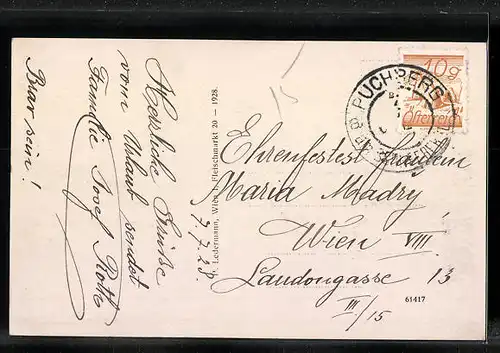 Herzliche Grüsse
vom Urlaub sendet
Familie Josef Roth
Brav sein!
P. Ledermann, Wien I. Fleischmarkt 20 — 1928.
7/7.28.
15
10g
Österreich
PUCHBERG
Ehrenfestest Fräulein
Maria Madry
Wien VIII
Laudongasse 13
III/15
61417